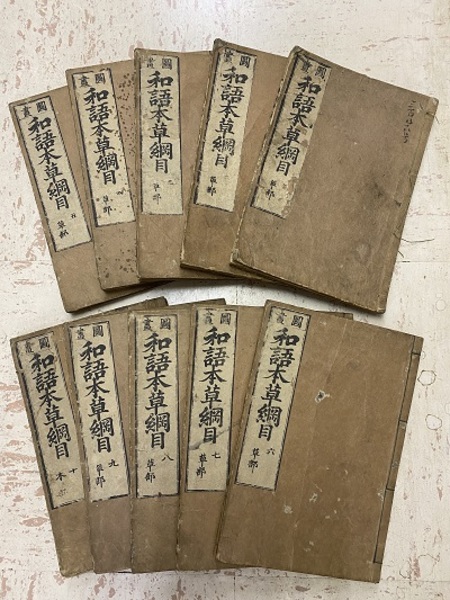 圖畫
和語本草綱目
五
草部
圖畫
和語本草綱目
草部
圖畫
和語本草綱目
草部
圖畫
和語本草綱目
草部
圖畫
和語本草綱目
草部
圖畫
和語本草綱目
十
木
圖畫
和語本草綱目
九
草部
圖畫
和語本草綱目
八
草部
圖畫
和語本草綱目
七
草部
圖畫
和語本草綱目
六
草部